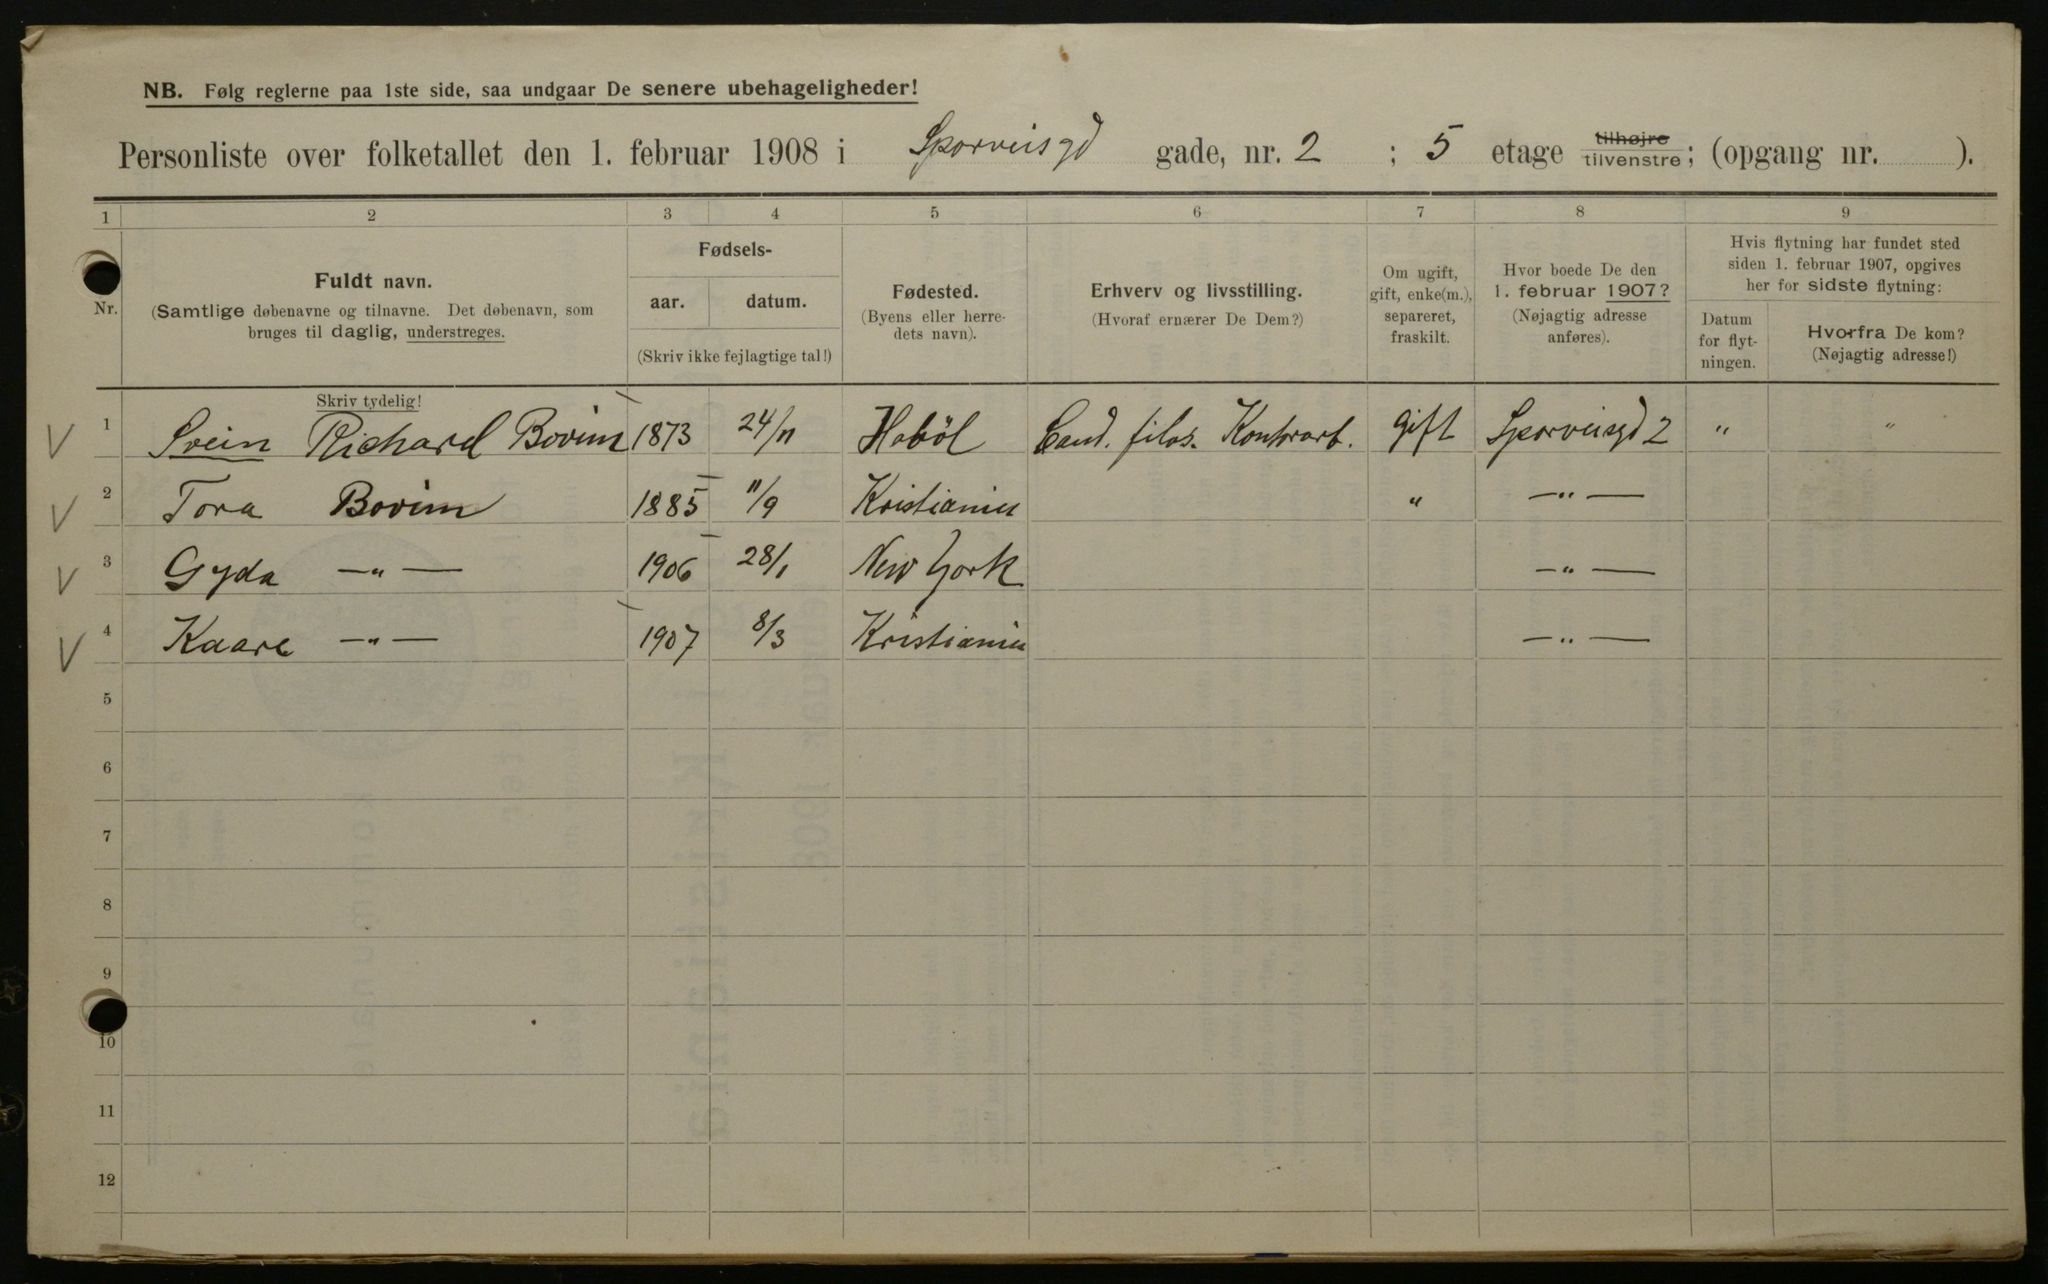 NB. Følg reglerne paa 1ste side, saa undgaar De senere ubehageligheder!
Personliste over folketallet den 1. februar 1908 i Sporveisgd gade, nr. 2 ; 5 etage tilhøjre tilvenstre; (opgang nr. ).
1 2 3 4 5 6 7 8 9
Nr.
Fuldt navn.
(Samtlige døbenavne og tilnavne. Det døbenavn, som
bruges til daglig, understreges.
Skriv tydelig!
Fødsels-
aar. datum.
(Skriv ikke fejlagtige tal!)
Fødested.
(Byens eller herre-
dets navn).
Erhverv og livsstilling.
(Hvoraf ernærer De Dem?)
Om ugift,
gift, enke(m.),
separeret,
fraskilt.
Hvor boede De den
1. februar 1907?
(Nøjagtig adresse
anføres).
Hvis flytning har fundet sted
siden 1. februar 1907, opgives
her for sidste flytning:
Datum
for flyt-
ningen.
Hvorfra De kom?
(Nøjagtig adresse!)
V 1 Svein Richard Bovim 1873 24/11 Hoböl Cand. filos. Kontorarb. gift Sporveisgd 2 " "
V 2 Tora Bovim 1885 11/9 Kristiania " —"—
V 3 Gyda —"— 1906 28/1 New York —"—
V 4 Kaare —"— 1907 8/3 Kristiania —"—
5
6
7
8
9
10
11
12